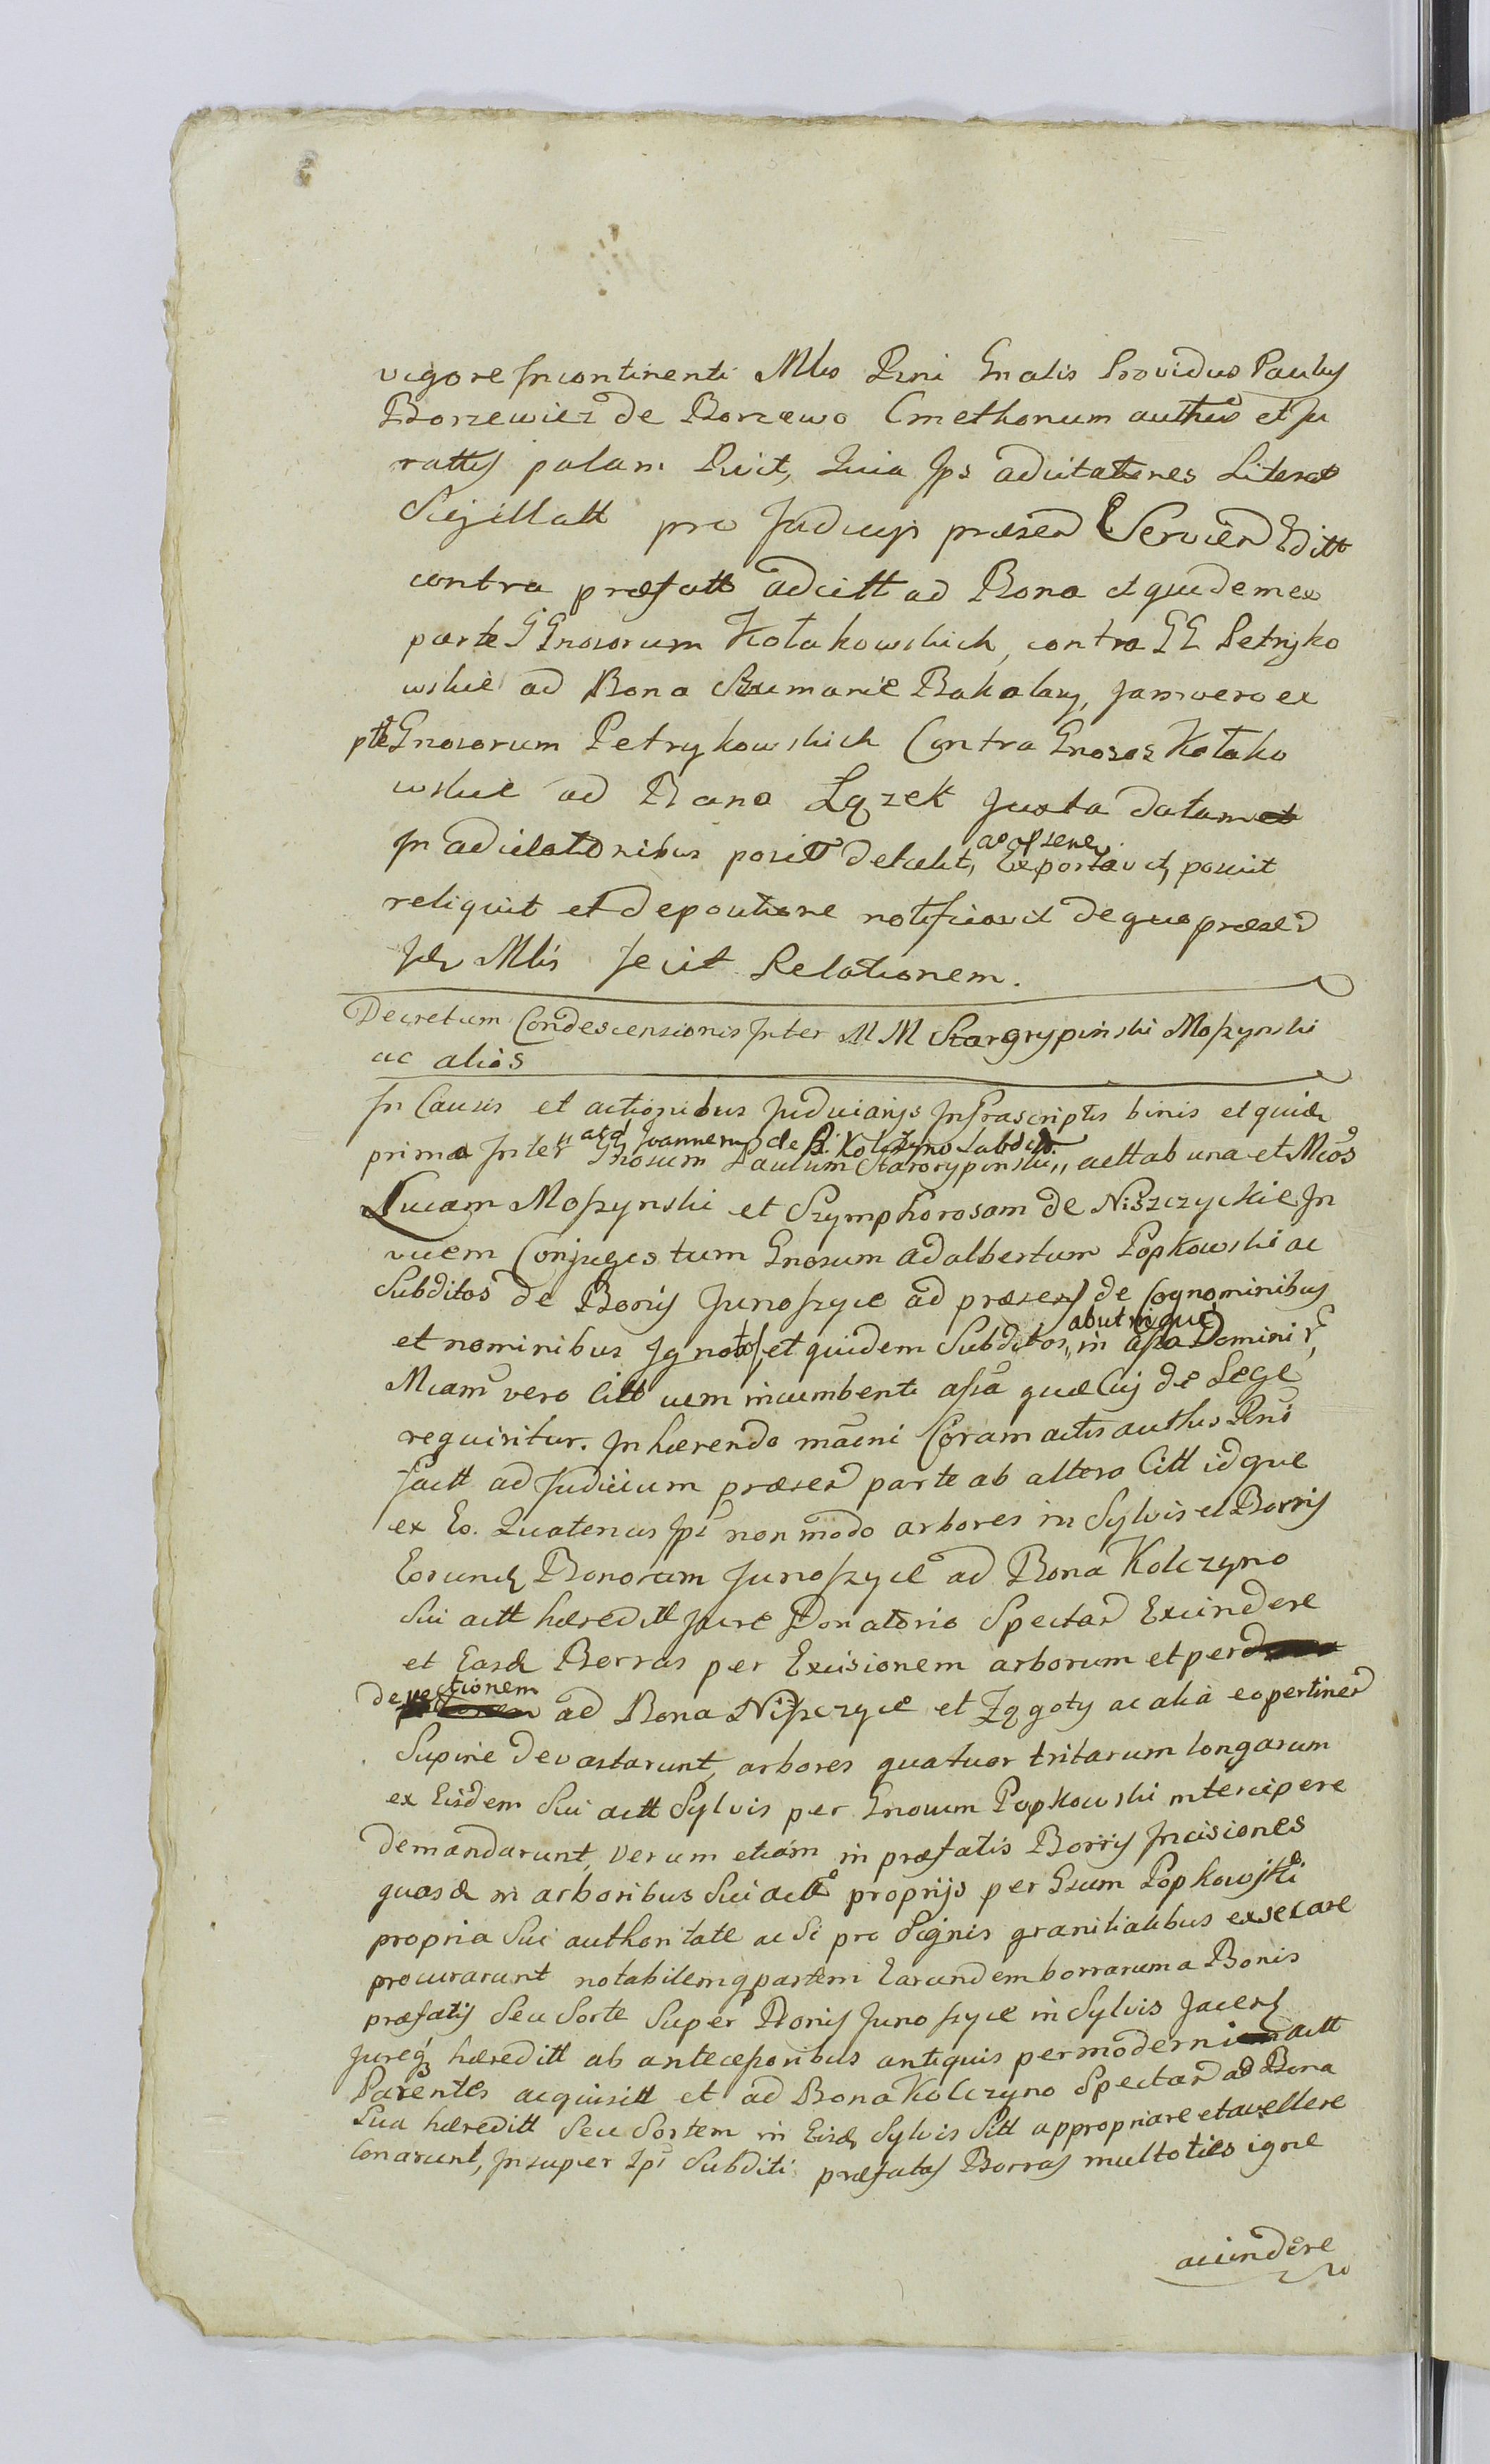 vigore Incontinenti Mlis Rni Gnalis Providus Paulus
Borzewicz de Borzewo Cmethonum authus et Ju
rattus palam Dixit, Quia Ips adcitationes Literat
Sigillatt pro Judicys præsen Servien Editt
contra præfatt adcitt ad Bona et quidem ex
parte GGnosorum Kołakowskich, contra GG Petryko
wskie ad Bona Bakałary, jam vero ex
pte Gnosorum Petrykowskich Contra Gnosos Kołako
wskie ad Bona Lązek Juxta datam et
In adcitationibus positt detulit, Exportavit, posuit
reliquit et de positione notificavit de quo præsen
Jur Mlis fecit Relationem.
Decretum Condescensionis Inter MM Stargrypinski Moszynski
ac alios
In Causis et actionibus Judiciarys Infrascriptis binis et quidem
prima Inter Gnosum Paulum Starorypinski actt ab una et Micos
ac Joannem de B. Kolczyno Subdit
Lucam Moszynski et Szymphorosam de Niszczyckie In
vicem Conjuges tum Gnosum Adalbertum Popkowski ac
Subditos de Bonis Junoszyce ad præsens de Cognominibus
et nominibus Ignotos, et quidem Subditos in assa Domini
ab utrique
Micam vero Citt incumbenti assa quæ Cuj de Lege
requiritur. Inhærendo mani Coram actis authis Rni
factt ad Judicium præsen parte ab altera Citt idque
ex Eo. Quatenus Ipi non modo arbores in Sylvis et Borris
Eorund Bonorum Junoszyce ad Bona Kolczyno
Sui actt hæreditt Jure Donatorio Spectan Excindere
et Easd Borras per Excisionem arborum et per
devectionem ad Bona Niszczyce et Zągoty ac alia eo pertinen
Supine devastarunt, arbores quatuor tritarum longarum
ex Eisdem Sui actt Sylvis per Gnosum Popkowski intercipere
demandarunt, Verum etiam in præfatis Borris Incisiones
quasd in arboribus Sui actt proprijs per Gsum Popkowski
propria Sui authoritate ac Si pro Signis granitialibus exsecare
procurarunt notabilemq partem Earundem borrarum a Bonis
præfatis Seu Sorte Super Bonis Junoszyce in Sylvis Jacen
Jureq hæreditt ab antecessoribus antiquis per moderni actt
Parentes acquisitt et ad Bona Kolczyno Spectan ad Bona
Sua hæreditt Seu Sortem in Eisd Sylvis Sitt appropriare et avellere
Conarunt, Insuper Ipi Subditi præfatas Borras multoties igne
accindere